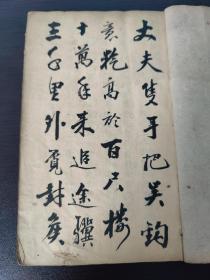 丈夫隻手把吴鈎
意氣高於百尺樓
十萬年來追逐驥
三千里外覓封侯